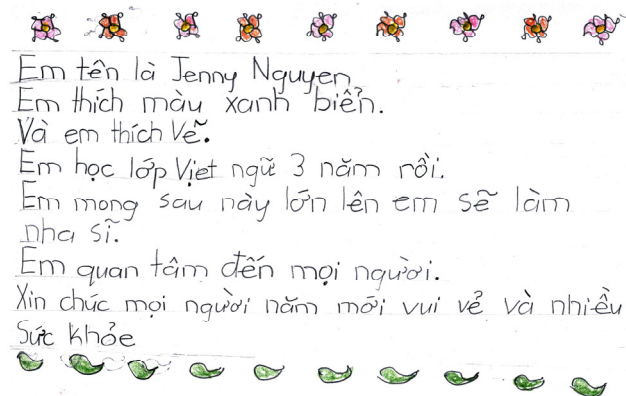 Em tên là Jenny Nguyen
Em thích màu xanh biển.
Và em thích Vẽ.
Em học lớp Việt ngữ 3 năm rồi.
Em mong sau này lớn lên em sẽ làm
nha sĩ.
Em quan tâm đến mọi người.
Xin chúc mọi người năm mới vui vẻ và nhiều
Sức khỏe